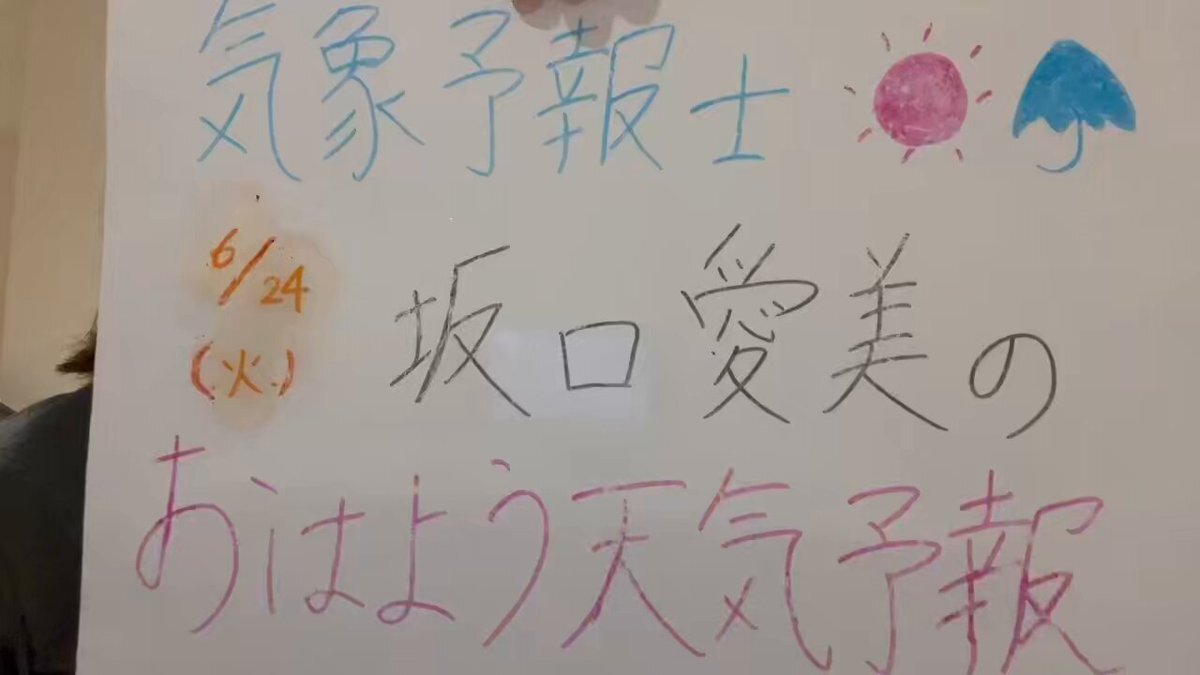 気象予報士
6/24
(火)
坂口愛美の
おはよう天気予報